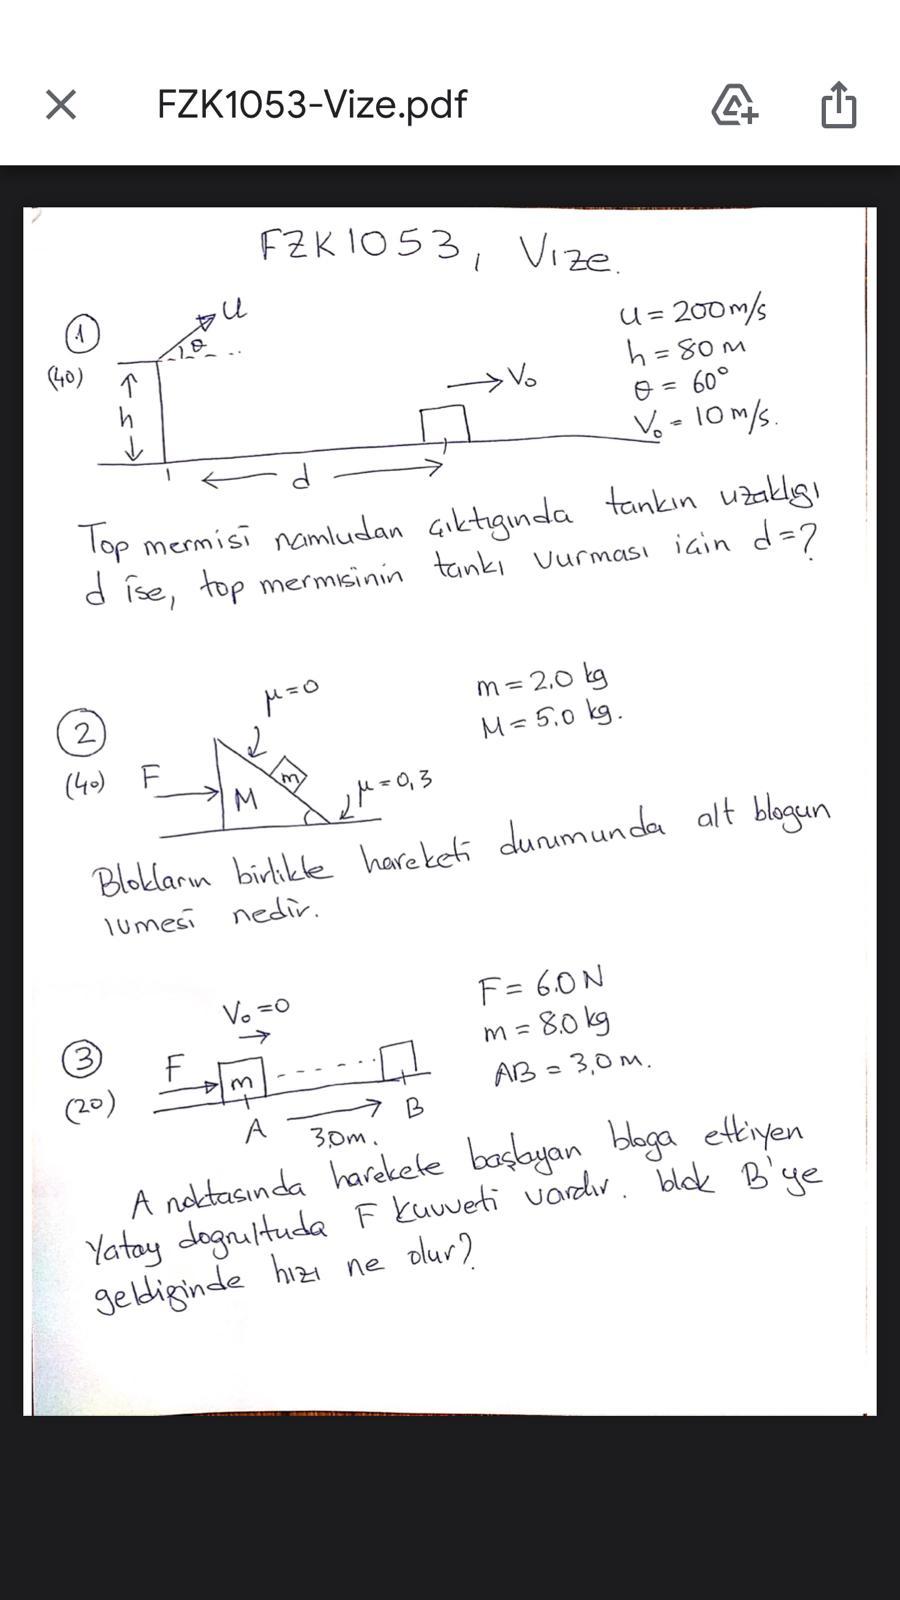 FZK1053-Vize.pdf
FZK1053, Vize.
1
(40)
u
θ
h
d
V₀
u = 200 m/s
h = 80 m
θ = 60°
V₀ = 10 m/s.
Top mermisi namludan çıktığında tankın uzaklığı
d ise, top mermisinin tankı vurması için d=?
2
(40)
μ=0
F
M
m
μ=0,3
m = 2.0 kg
M = 5.0 kg.
Blokların birlikte hareketi durumunda alt bloğun
ivmesi nedir.
3
(20)
V₀=0
F
m
A
3,0m.
B
F = 6.0 N
m = 8.0 kg
AB = 3,0 m.
A noktasında harekete başlayan bloğa etkiyen
Yatay doğrultuda F kuvveti vardır. blok B'ye
geldiğinde hızı ne olur?